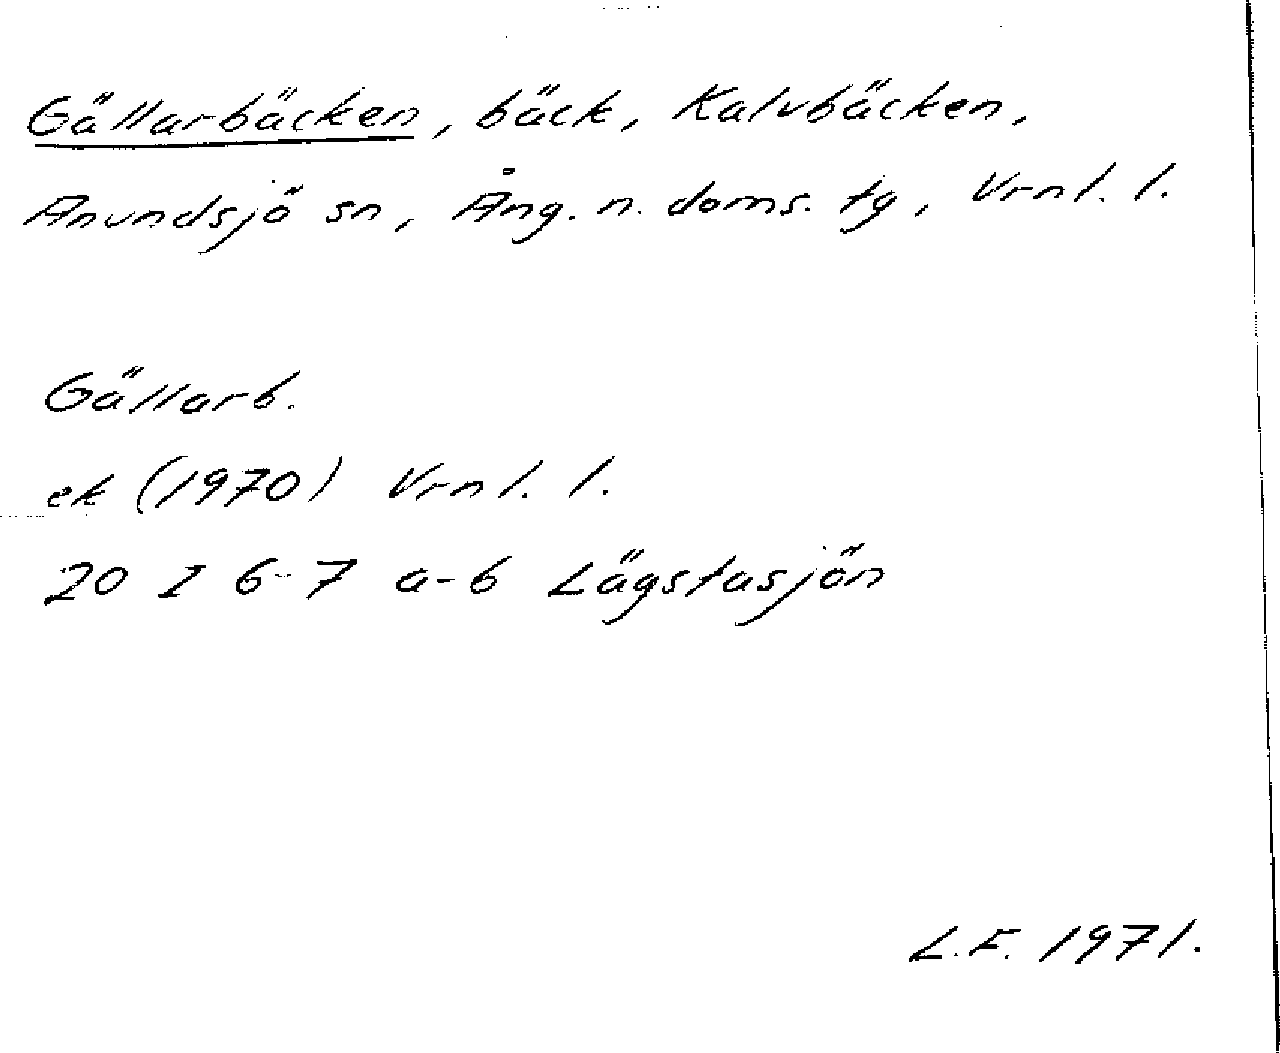 Gällarbäcken, bäck, Kalvbäcken,
Anundsjö sn, Ång. n. doms. tg, Vrnl. l.
Gällarb.
ek (1970) Vrnl. l.
20 I 6-7 a-b Lägstasjön
L.F. 1971.